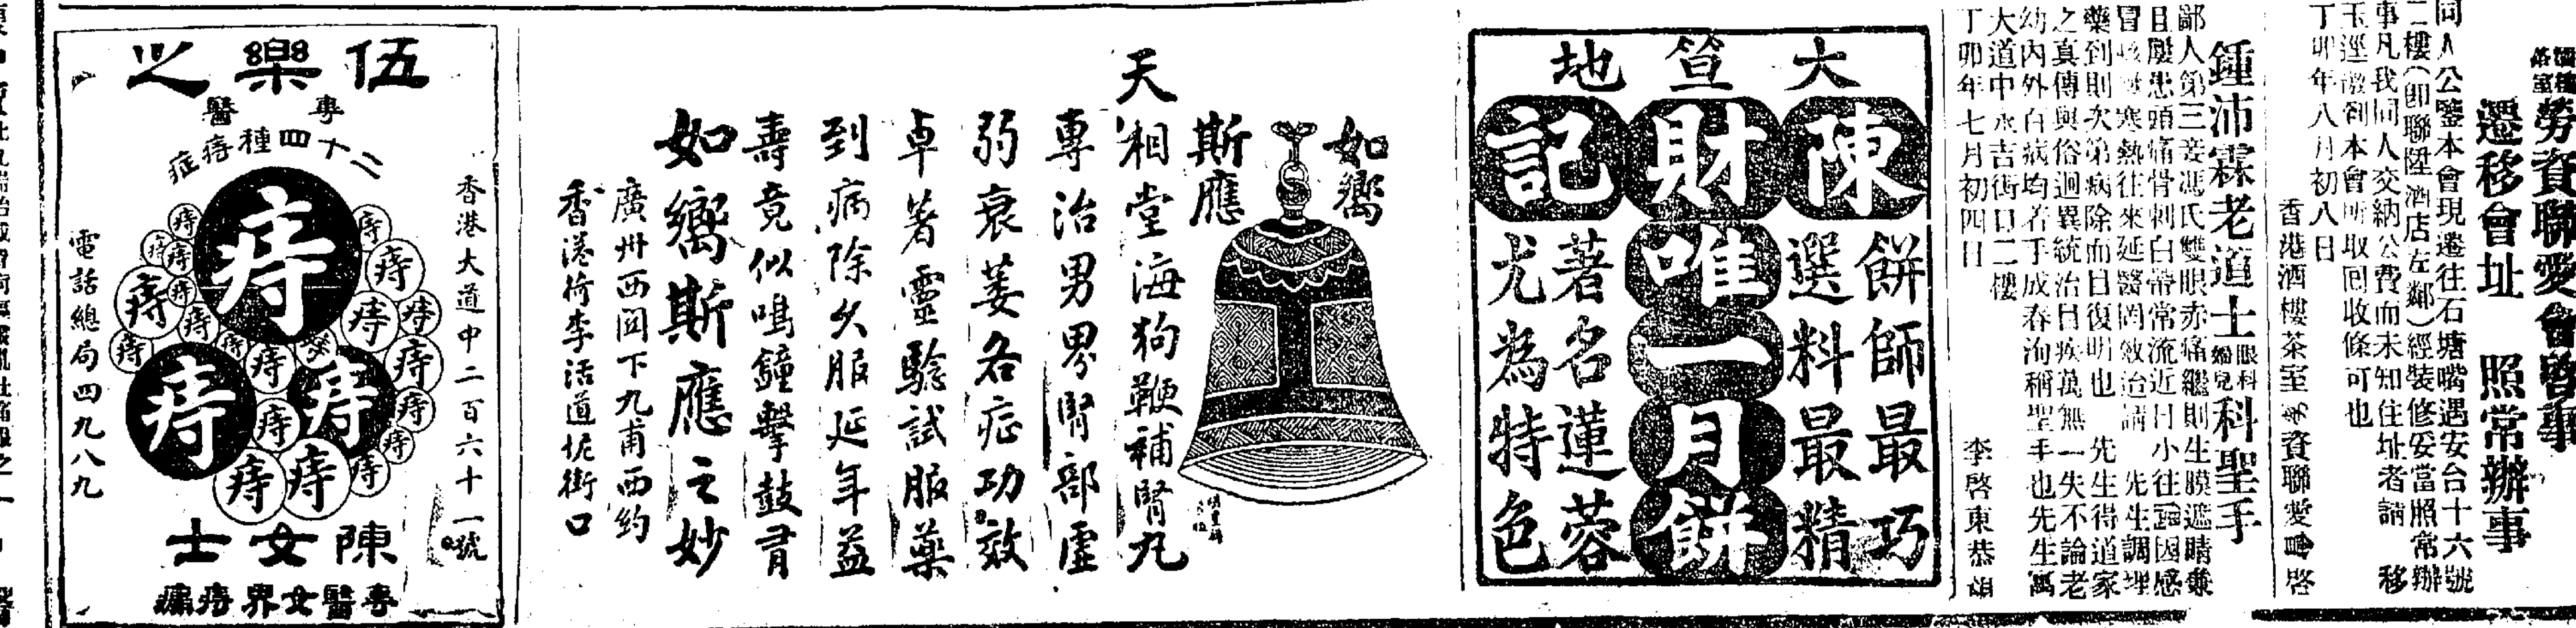 勞資聯愛會啓事
遷移會址 照常辦事
同人公鑒本會現遷往石塘嘴遇安台十六號
二樓(即聯陞酒店左鄰)經裝修妥當照常辦
事凡我同人交納公費而未知住址者請 移
玉逕繳到本會所取回收條可也
丁卯年八月初八日
香港酒樓茶室勞資聯愛會啓
鍾沛霖老道士眼科婦兒科聖手
鄙人第三妾馮氏雙眼赤痛繼則生膜遮睛兼
且屢患頭痛骨刺白帶常流近日小往 因感
冒咳 寒熱往來延醫罔效治請 先生調理
藥到則次第病除而目復明也 先生得道家
之真傳與俗迥異統治目疾萬無一失不論老
幼內外百病均若手成春洵稱聖手也先生寓
大道中永吉街口二樓
丁卯年七月初四日
李啓東恭頌
大笪地
陳財記
唯一月餅
餅師最巧
選料最精
著名蓮蓉
尤為特色
如嚮
斯應
天相堂海狗鞭補腎丸
專治男界腎部虛
弱衰萎各症功效
卓著靈驗試服藥
到病除久服延年益
壽竟似鳴鐘擊鼓有
如嚮斯應之妙
廣州西關下九甫西約
香港荷李活道坭街口
伍樂之
專醫
二十四種痔症
香港大道中二百六十一號
痔
痔
痔
電話總局四九八九
陳女士
專醫女界痔痛